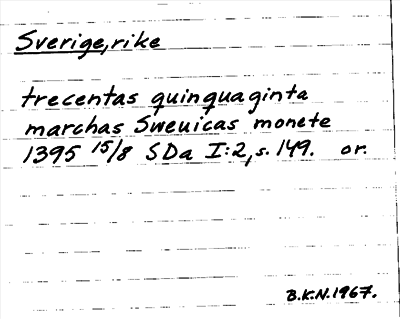 Sverige, rike
trecentas quinquaginta
marchas Sweuicas monete
1395 15/8 SDa I:2, s. 149. or.
B.K.N. 1967.